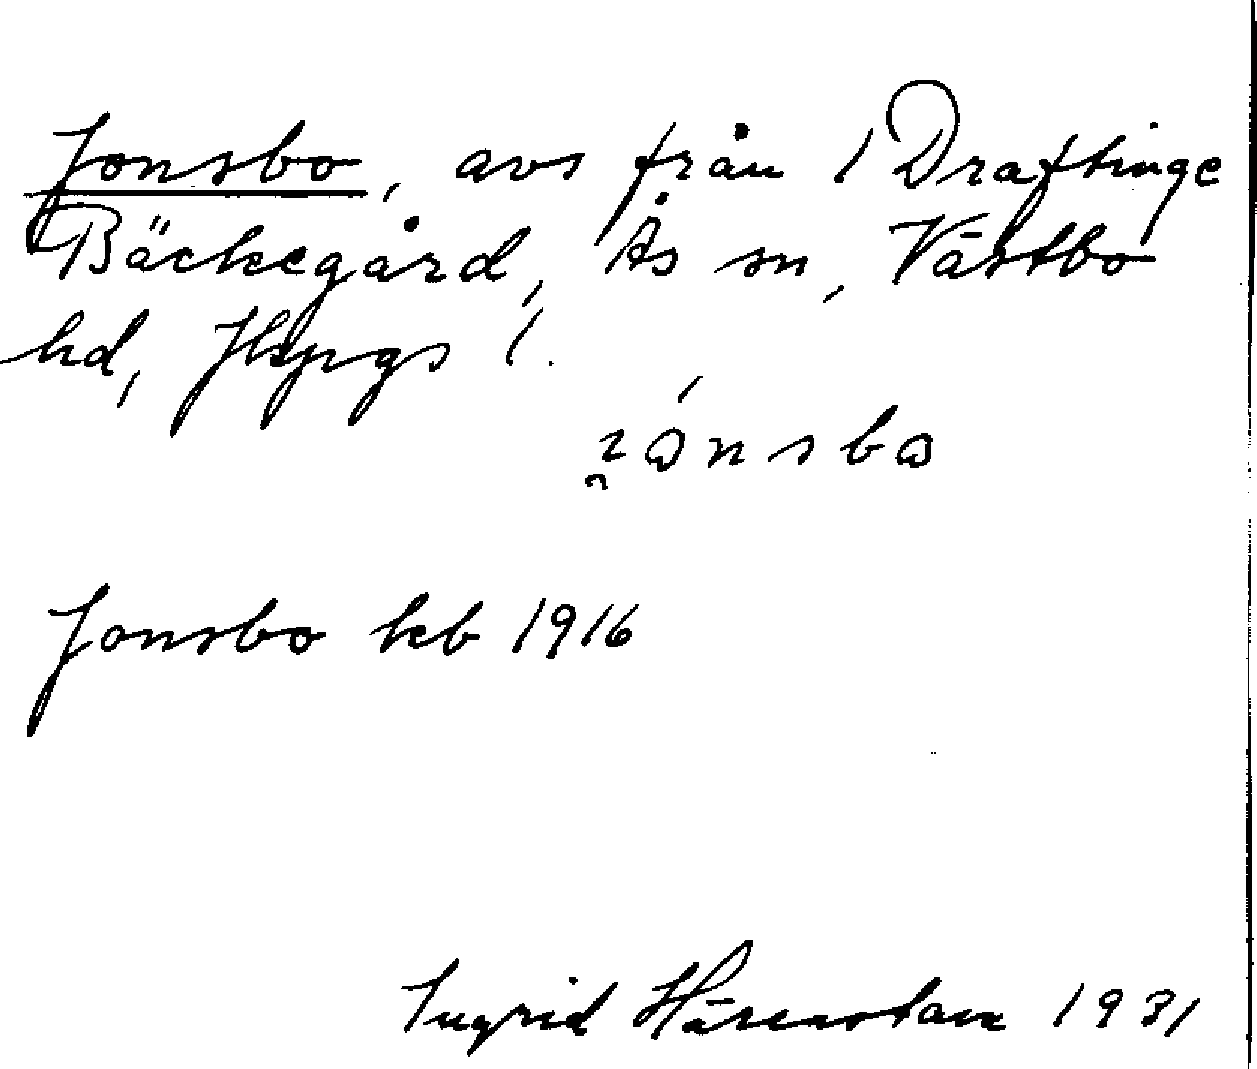 Jonsbo, avs från 1 Draftinge
Bäckegård, Ås sn, Västbo
hd, Jkpgs l.
Jonsbo kb 1916
Ingrid Härenstam 1931